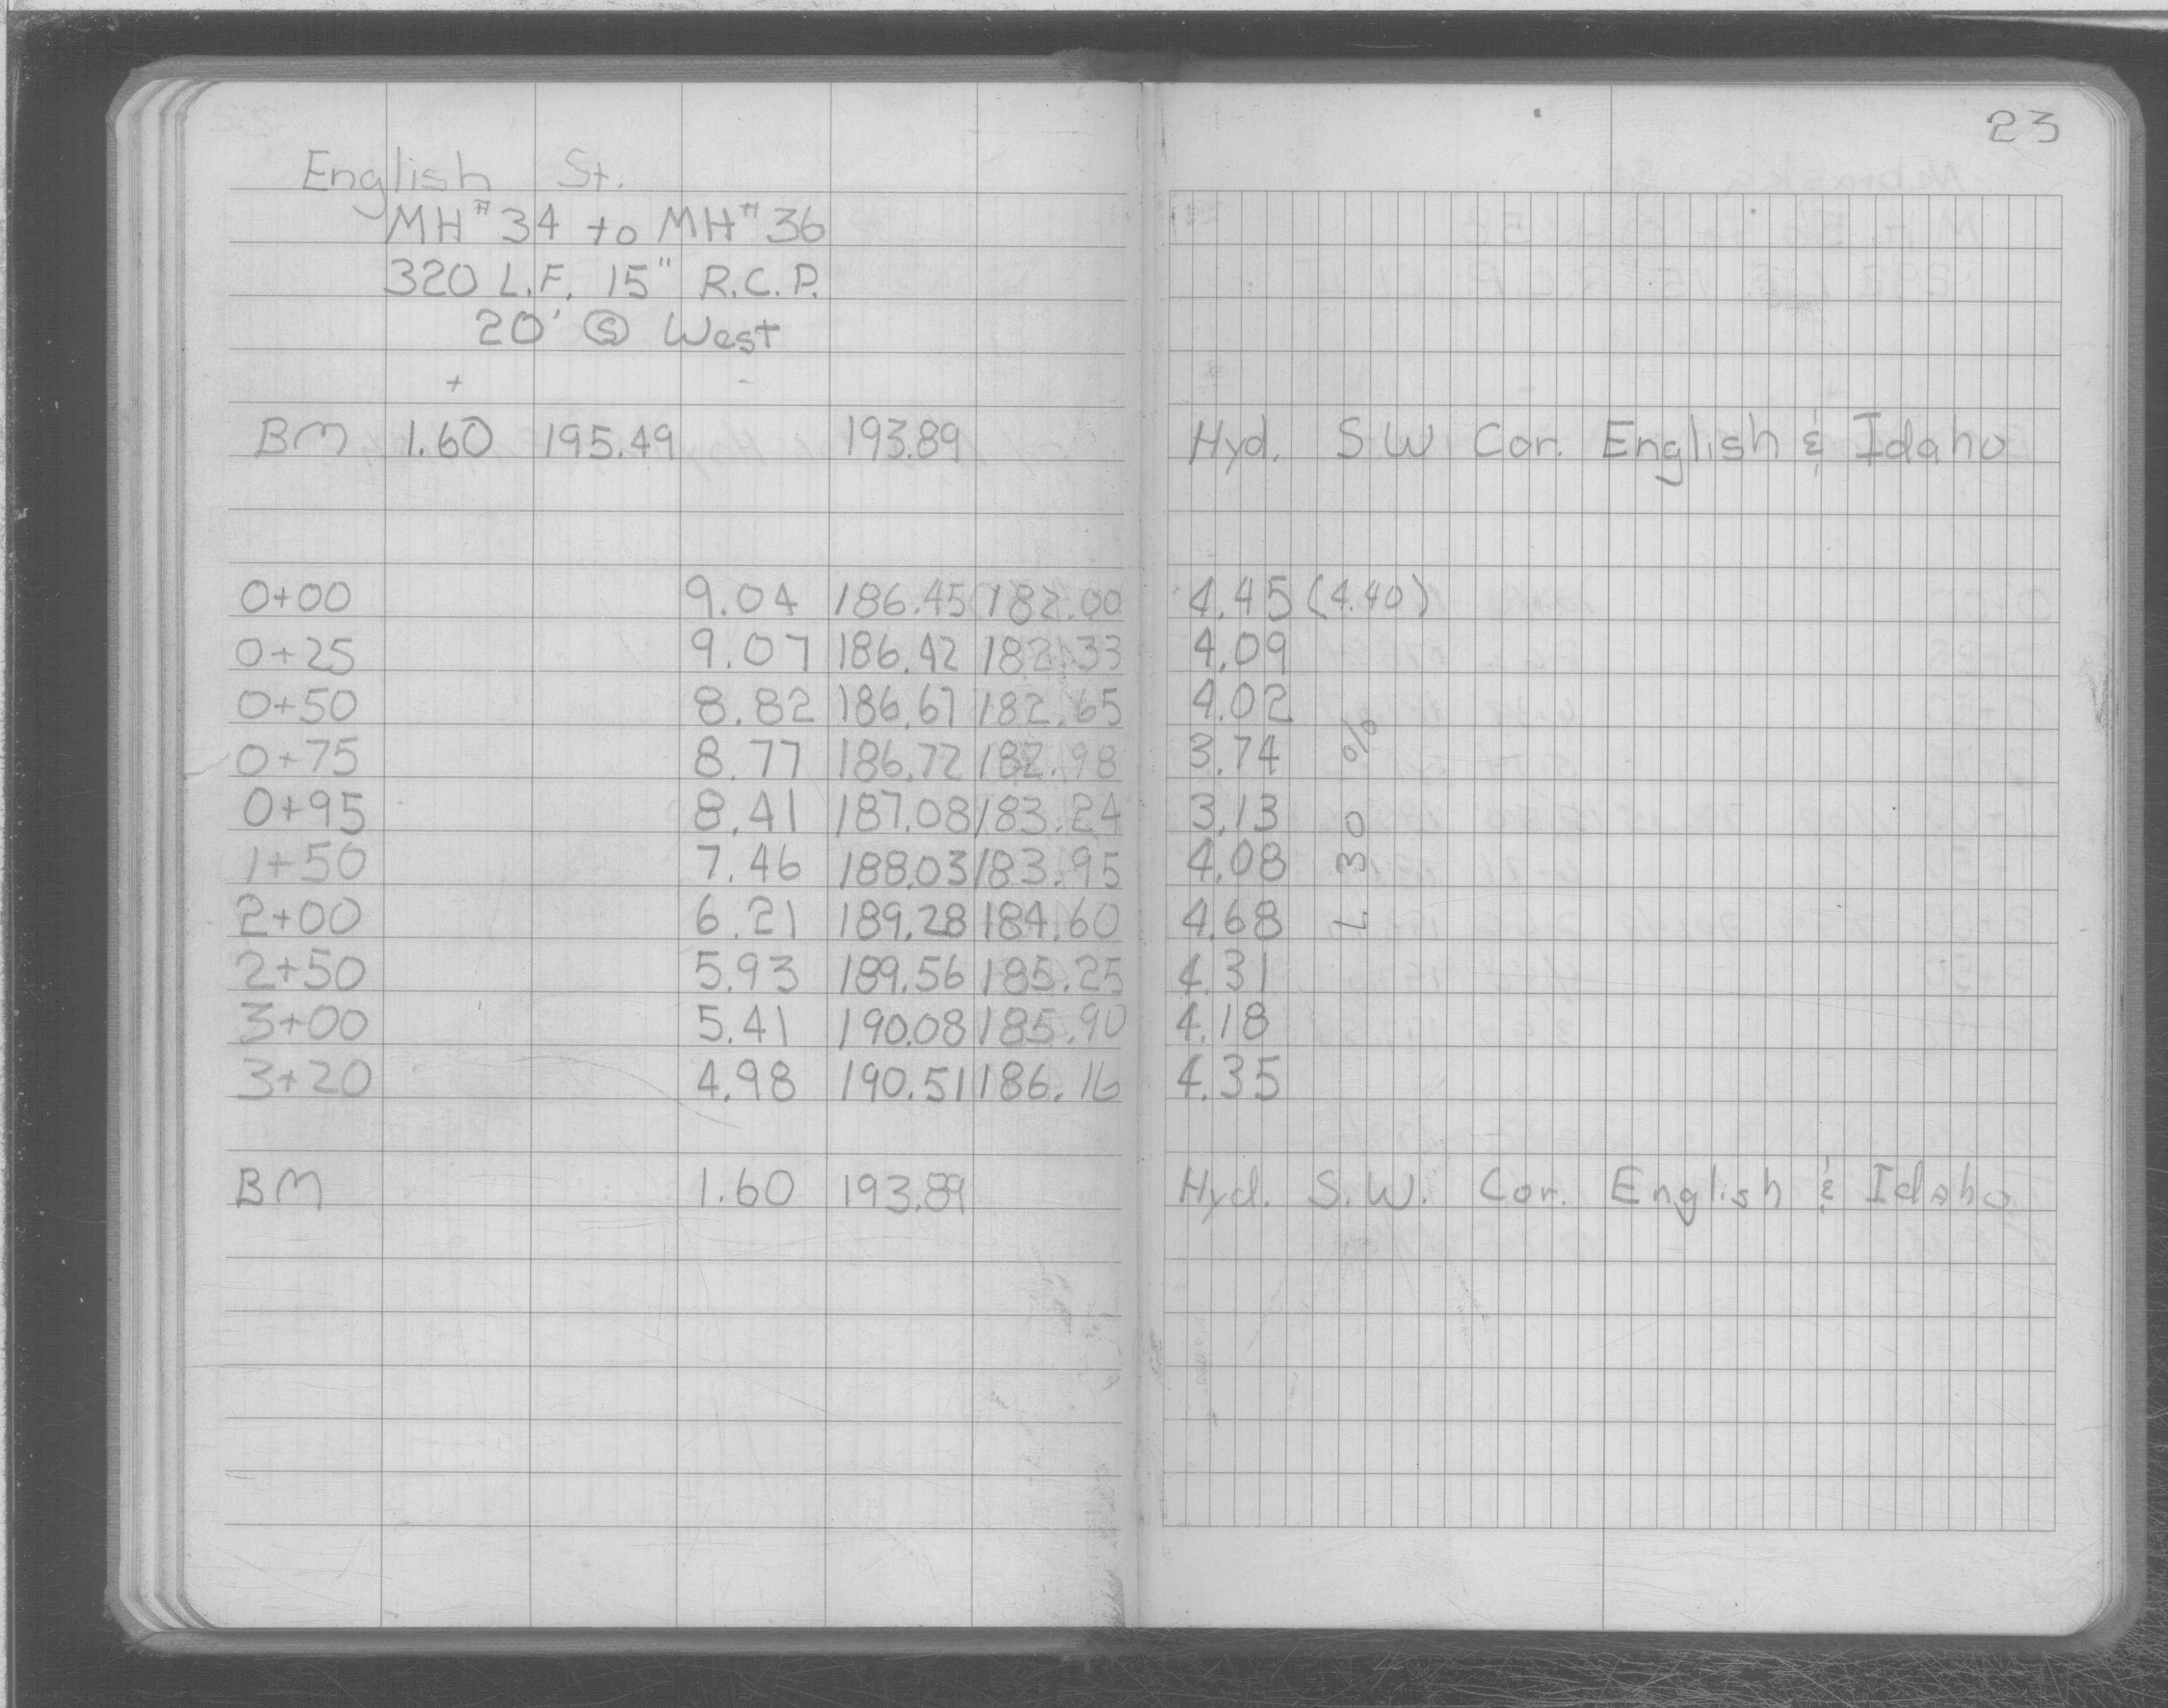 23
English St.
MH#34 to MH#36
320 L.F. 15" R.C.P.
20' Ⓢ West
+ -
BM 1.60 195.49 193.89 Hyd. S W Cor. English & Idaho
0+00 9.04 186.45 182.00 4.45 (4.40)
0+25 9.07 186.42 182.33 4.09
0+50 8.82 186.67 182.65 4.02
0+75 8.77 186.72 182.98 3.74
0+95 8.41 187.08 183.24 3.13
1+50 7.46 188.03 183.95 4.08
2+00 6.21 189.28 184.60 4.68
2+50 5.93 189.56 185.25 4.31
3+00 5.41 190.08 185.90 4.18
3+20 4.98 190.51 186.16 4.35
1.30 %
BM 1.60 193.89 Hyd. S.W. Cor. English & Idaho